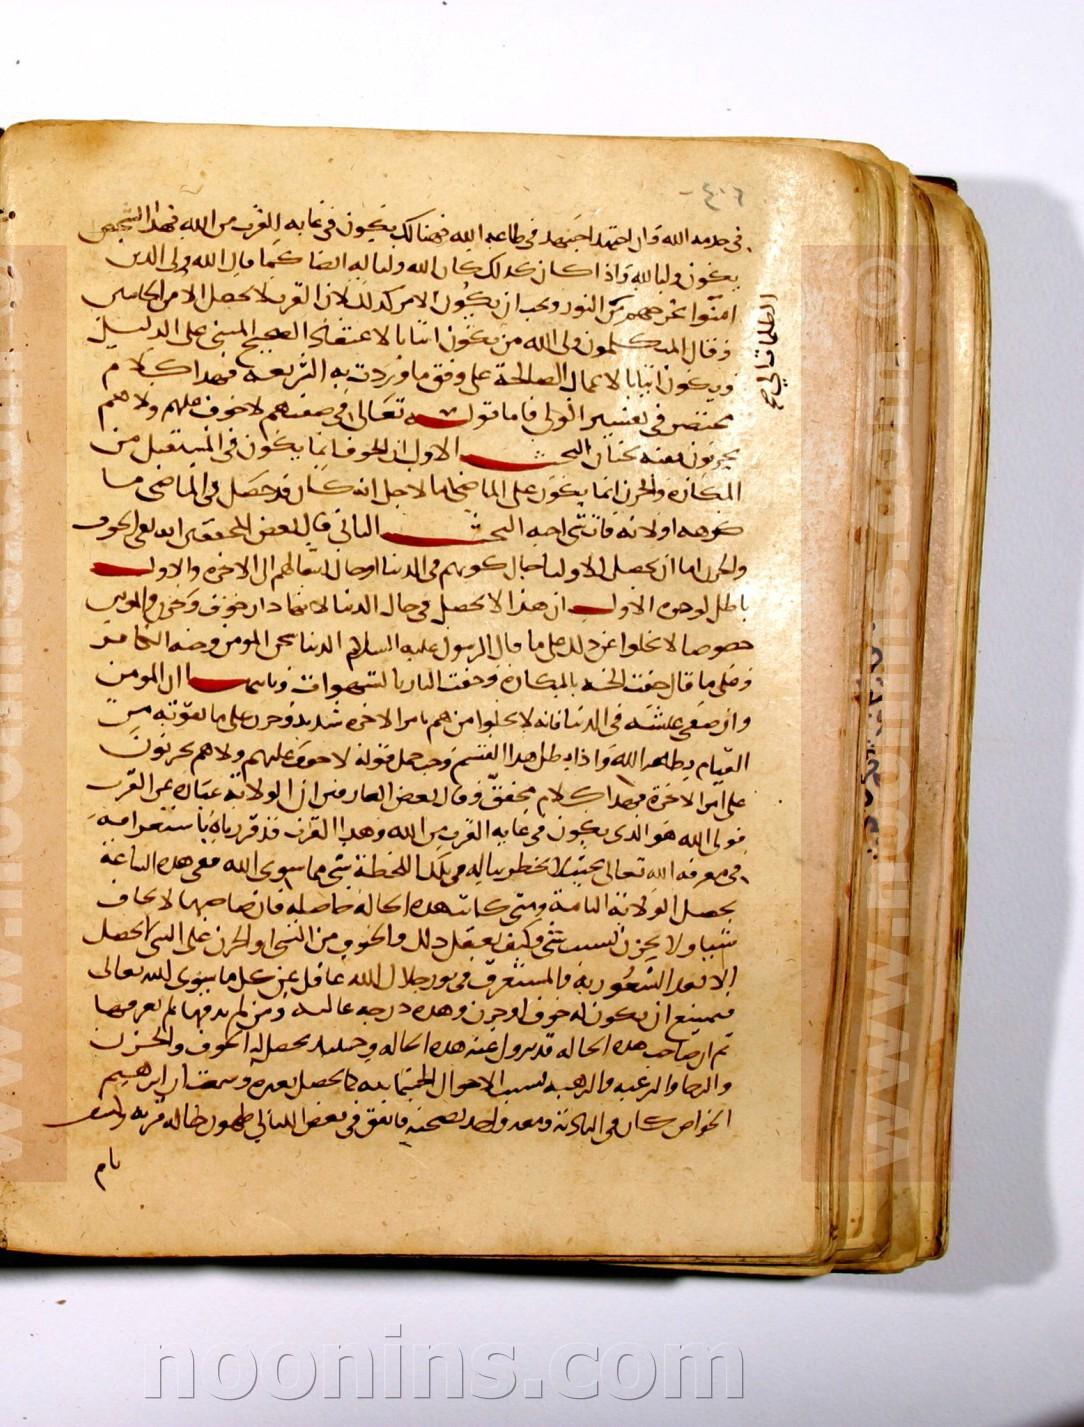 في خدمة الله وان اجتهد اجتهد في طاعة الله فهنالك يكون في غاية القرب من الله فهذا الشخص
يكون وليا لله واذا كان كذلك كان الله وليا له ايضا كما قال الله ولي الذين
امنوا يخرجهم من النور ويجب ان يكون الامر كذلك لان القرب لا يحصل الا من الجانبين
وقال المتكلمون ولي الله من يكون اتيا بالاعتقاد الصحيح المبني على الدليل
ويكون اتيا بالاعمال الصالحة على وفق ما وردت به الشريعة فهذا كلام
مختصر في تفسير الولي فاما قوله تعالى في صفتهم لا خوف عليهم ولا هم
يحزنون ففيه بحثان البحث الاول ان الخوف انما يكون في المستقبل من
المكاره والحزن انما يكون على الماضي اما لاجل انه كان قد حصل في الماضي ما
كرهه او لانه فات شي احبه البحث الثاني قال بعض المحققين ان نفي الخوف
والحزن اما ان يحصل للاوليا حال كونهم في الدنيا او حال انتقالهم الى الاخرة والاول
باطل لوجوه الاول ان هذا لا يحصل في حال الدنيا لانها دار خوف وحزن والمومن
خصوصا لا يخلوا عن ذلك على ما قال الرسول عليه السلام الدنيا سجن المومن وجنة الكافر
وعلى ما قال حفت الجنة بالمكاره وحفت النار بالشهوات وثانيها ان المومن
وان صفى عيشه في الدنيا فانه لا يخلوا من هم بامر الاخرة شديد وحزن على ما يفوته من
القيام بطاعة الله واذا بطل هذا القسم وجب حمل قوله لا خوف عليهم ولا هم يحزنون
على امر الاخرة فهذا كلام محقق وقال بعض العارفين ان الولاية عبارة عن القرب
فولى الله هو الذي يكون في غاية القرب من الله وهذا القرب قد قررناه باستغراقه
في معرفة الله تعالى بحيث لا يخطر بباله في تلك اللحظة شي مما سوى الله ففي هذه الساعة
يحصل الولاية التامة ومتى كانت هذه الحالة حاصلة فان صاحبها لا يخاف
شيا ولا يحزن لسبب شي وكيف يعقل ذلك والخوف من الشي او الحزن على الشي لا يحصل
الا بعد الشعور به والمستغرق في نور جلال الله غافل عن كل ما سوى الله تعالى
فيمتنع ان يكون له خوف او حزن وهذه درجة عالية ومن لم يذقها لم يعرفها
ثم ان صاحب هذه الحالة قد يزول عنه هذه الحالة وحينئذ يحصل له الخوف والحزن
والرجا والرغبة والرهبة بسبب الاحوال الجسمانية كما يحصل لغيره وسمعت ان ابرهيم
الخواص كان في البادية ومعه واحد يصحبه فاتفق في بعض الليالي ظهور حالة قوية
نام
الظلمات الى